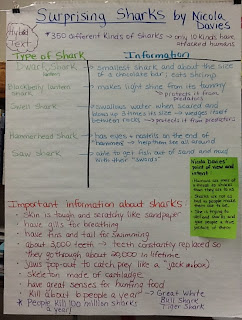 Surprising Sharks by Nicola Davies
Hybrid Text
* 350 different kinds of sharks → only 10 kinds have attacked humans
Type of Shark
Information
Dwarf Shark
→ smallest shark and about the size of a chocolate bar; eats shrimp
Blackberry lantern shark
→ makes light shine from its tummy
→ protects it from predators
Swell Shark
→ swallows water when scared and blows up 3 times its size → wedges itself between rocks → protects it from predators
Hammerhead Shark
→ has eyes + nostrils on the end of hammer → help them see all around
Saw Shark
→ able to get fish out of sand and mud with their "swords"
Nicola Davies' point of view and intent
Important information about sharks:
• Skin is tough and scratchy like sandpaper
• have gills for breathing
• have fins and tail for swimming
• about 3,000 teeth → teeth constantly replaced so they go through about 20,000 in lifetime
• jaws pop-out to catch prey like a "jack in box"
• skeleton made of cartilage
• have great senses for hunting food
• Kill about 6 people a year → Great White
Bull Shark
Tiger Shark
* People kill 100 million sharks a year